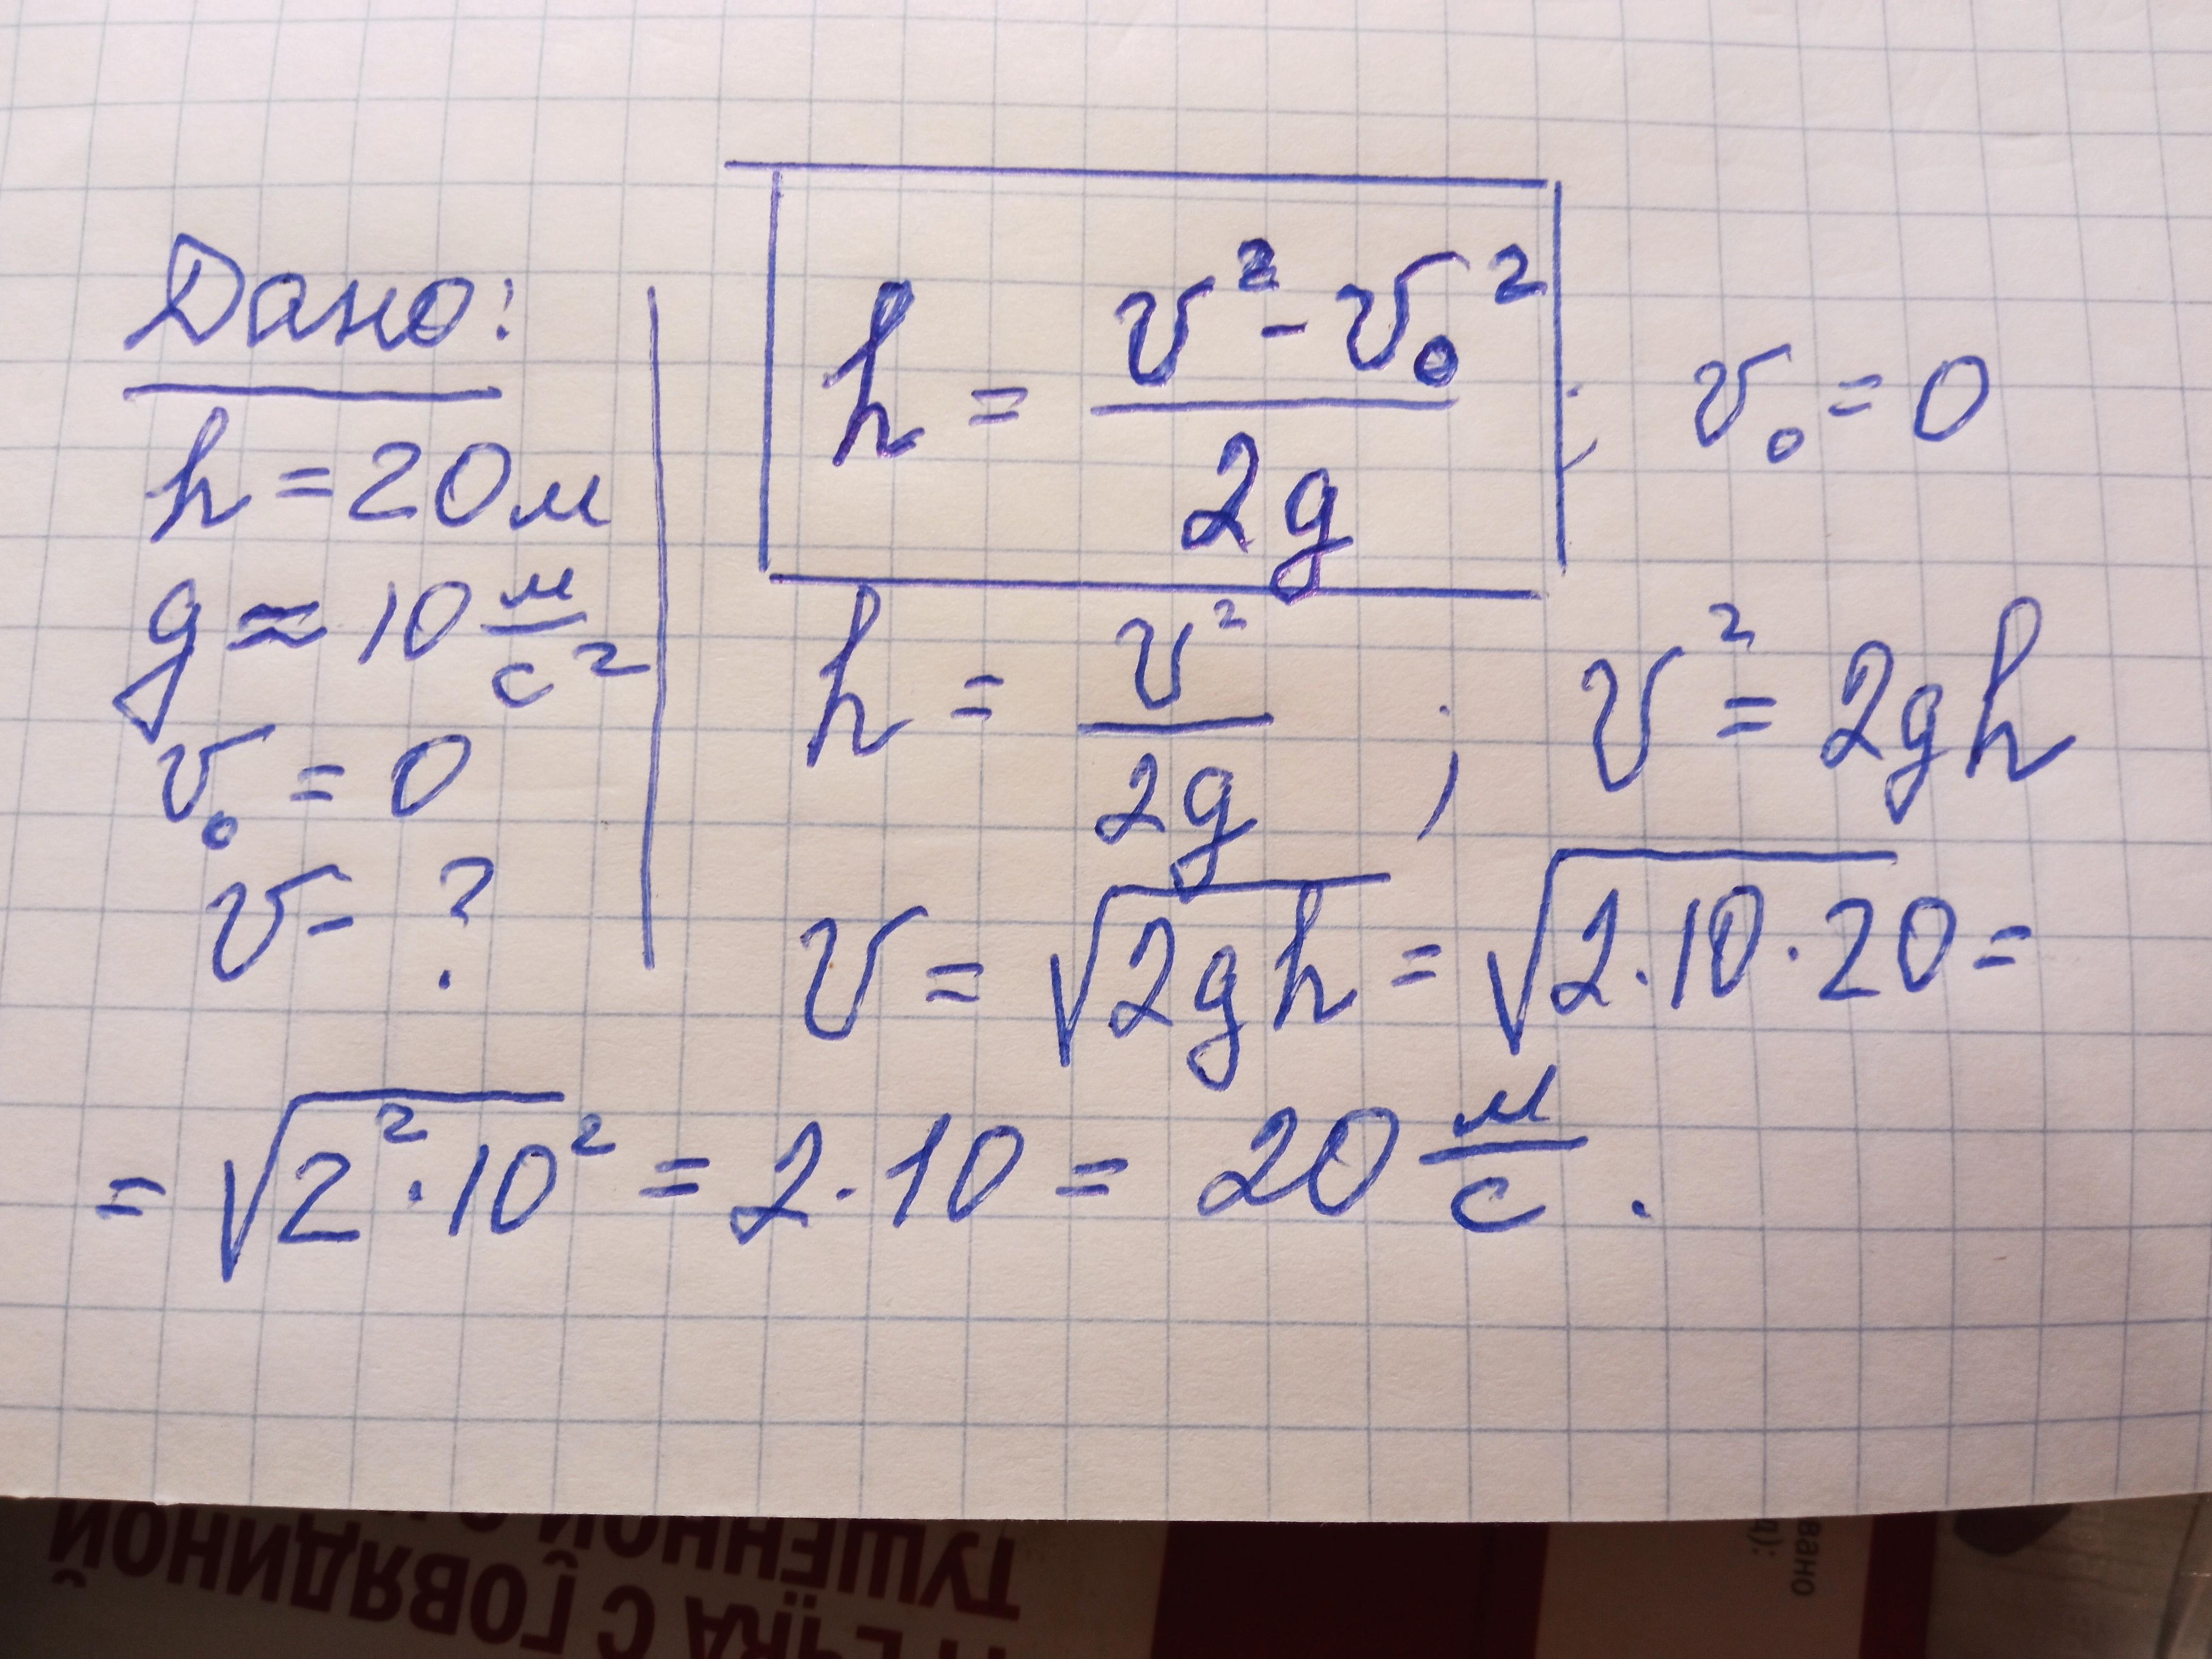 Дано:
h = 20 м
g ≈ 10 м/с²
v₀ = 0
v - ?
h = (v² - v₀²)/2g ; v₀ = 0
h = v²/2g ; v² = 2gh
v = √2gh = √2·10·20 =
= √2²·10² = 2·10 = 20 м/с.
ТУШЕННОЙ
С ГОВЯДИНОЙ
вано